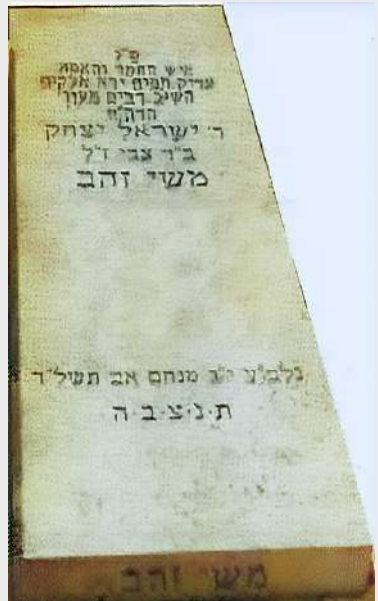 פ"נ
איש החסד והאמת
צדיק תמים ירא אלקים
השיב רבים מעון
הרה"ח
ר' ישראל יצחק
ב"ר צבי ז"ל
משי זהב
נלב"ע י"ב מנחם אב תשל"ד
ת.נ.צ.ב.ה
משי זהב